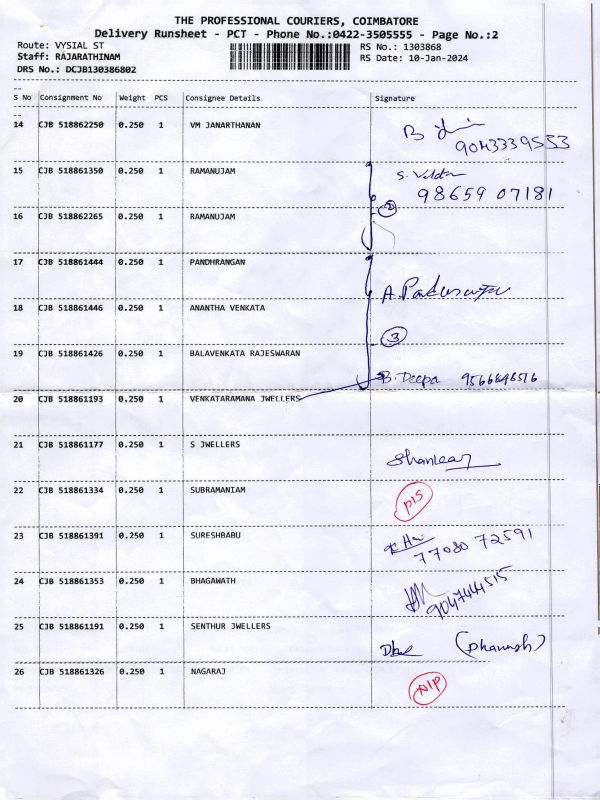 THE PROFESSIONAL COURIERS, COIMBATORE
Delivery Runsheet - PCT - Phone No.:0422-3505555 - Page No.:2
Route: VYSIAL ST RS No.: 1303868
Staff: RAJARATHINAM RS Date: 10-Jan-2024
DRS No.: DCJB130386802
S No Consignment No Weight PCS Consignee Details Signature
14 CJB 518862250 0.250 1 VM JANARTHANAN
9043339553
15 CJB 518861350 0.250 1 RAMANUJAM
98659 07181
16 CJB 518862265 0.250 1 RAMANUJAM
2
17 CJB 518861444 0.250 1 PANDHRANGAN
18 CJB 518861446 0.250 1 ANANTHA VENKATA
3
19 CJB 518861426 0.250 1 BALAVENKATA RAJESWARAN
B. Deepa 9566648516
20 CJB 518861193 0.250 1 VENKATARAMANA JWELLERS
21 CJB 518861177 0.250 1 S JWELLERS
Shankar
22 CJB 518861334 0.250 1 SUBRAMANIAM
PIS
23 CJB 518861391 0.250 1 SURESHBABU
77080 72591
24 CJB 518861353 0.250 1 BHAGAWATH
9047444515
25 CJB 518861191 0.250 1 SENTHUR JWELLERS
(Dhanush)
26 CJB 518861326 0.250 1 NAGARAJ